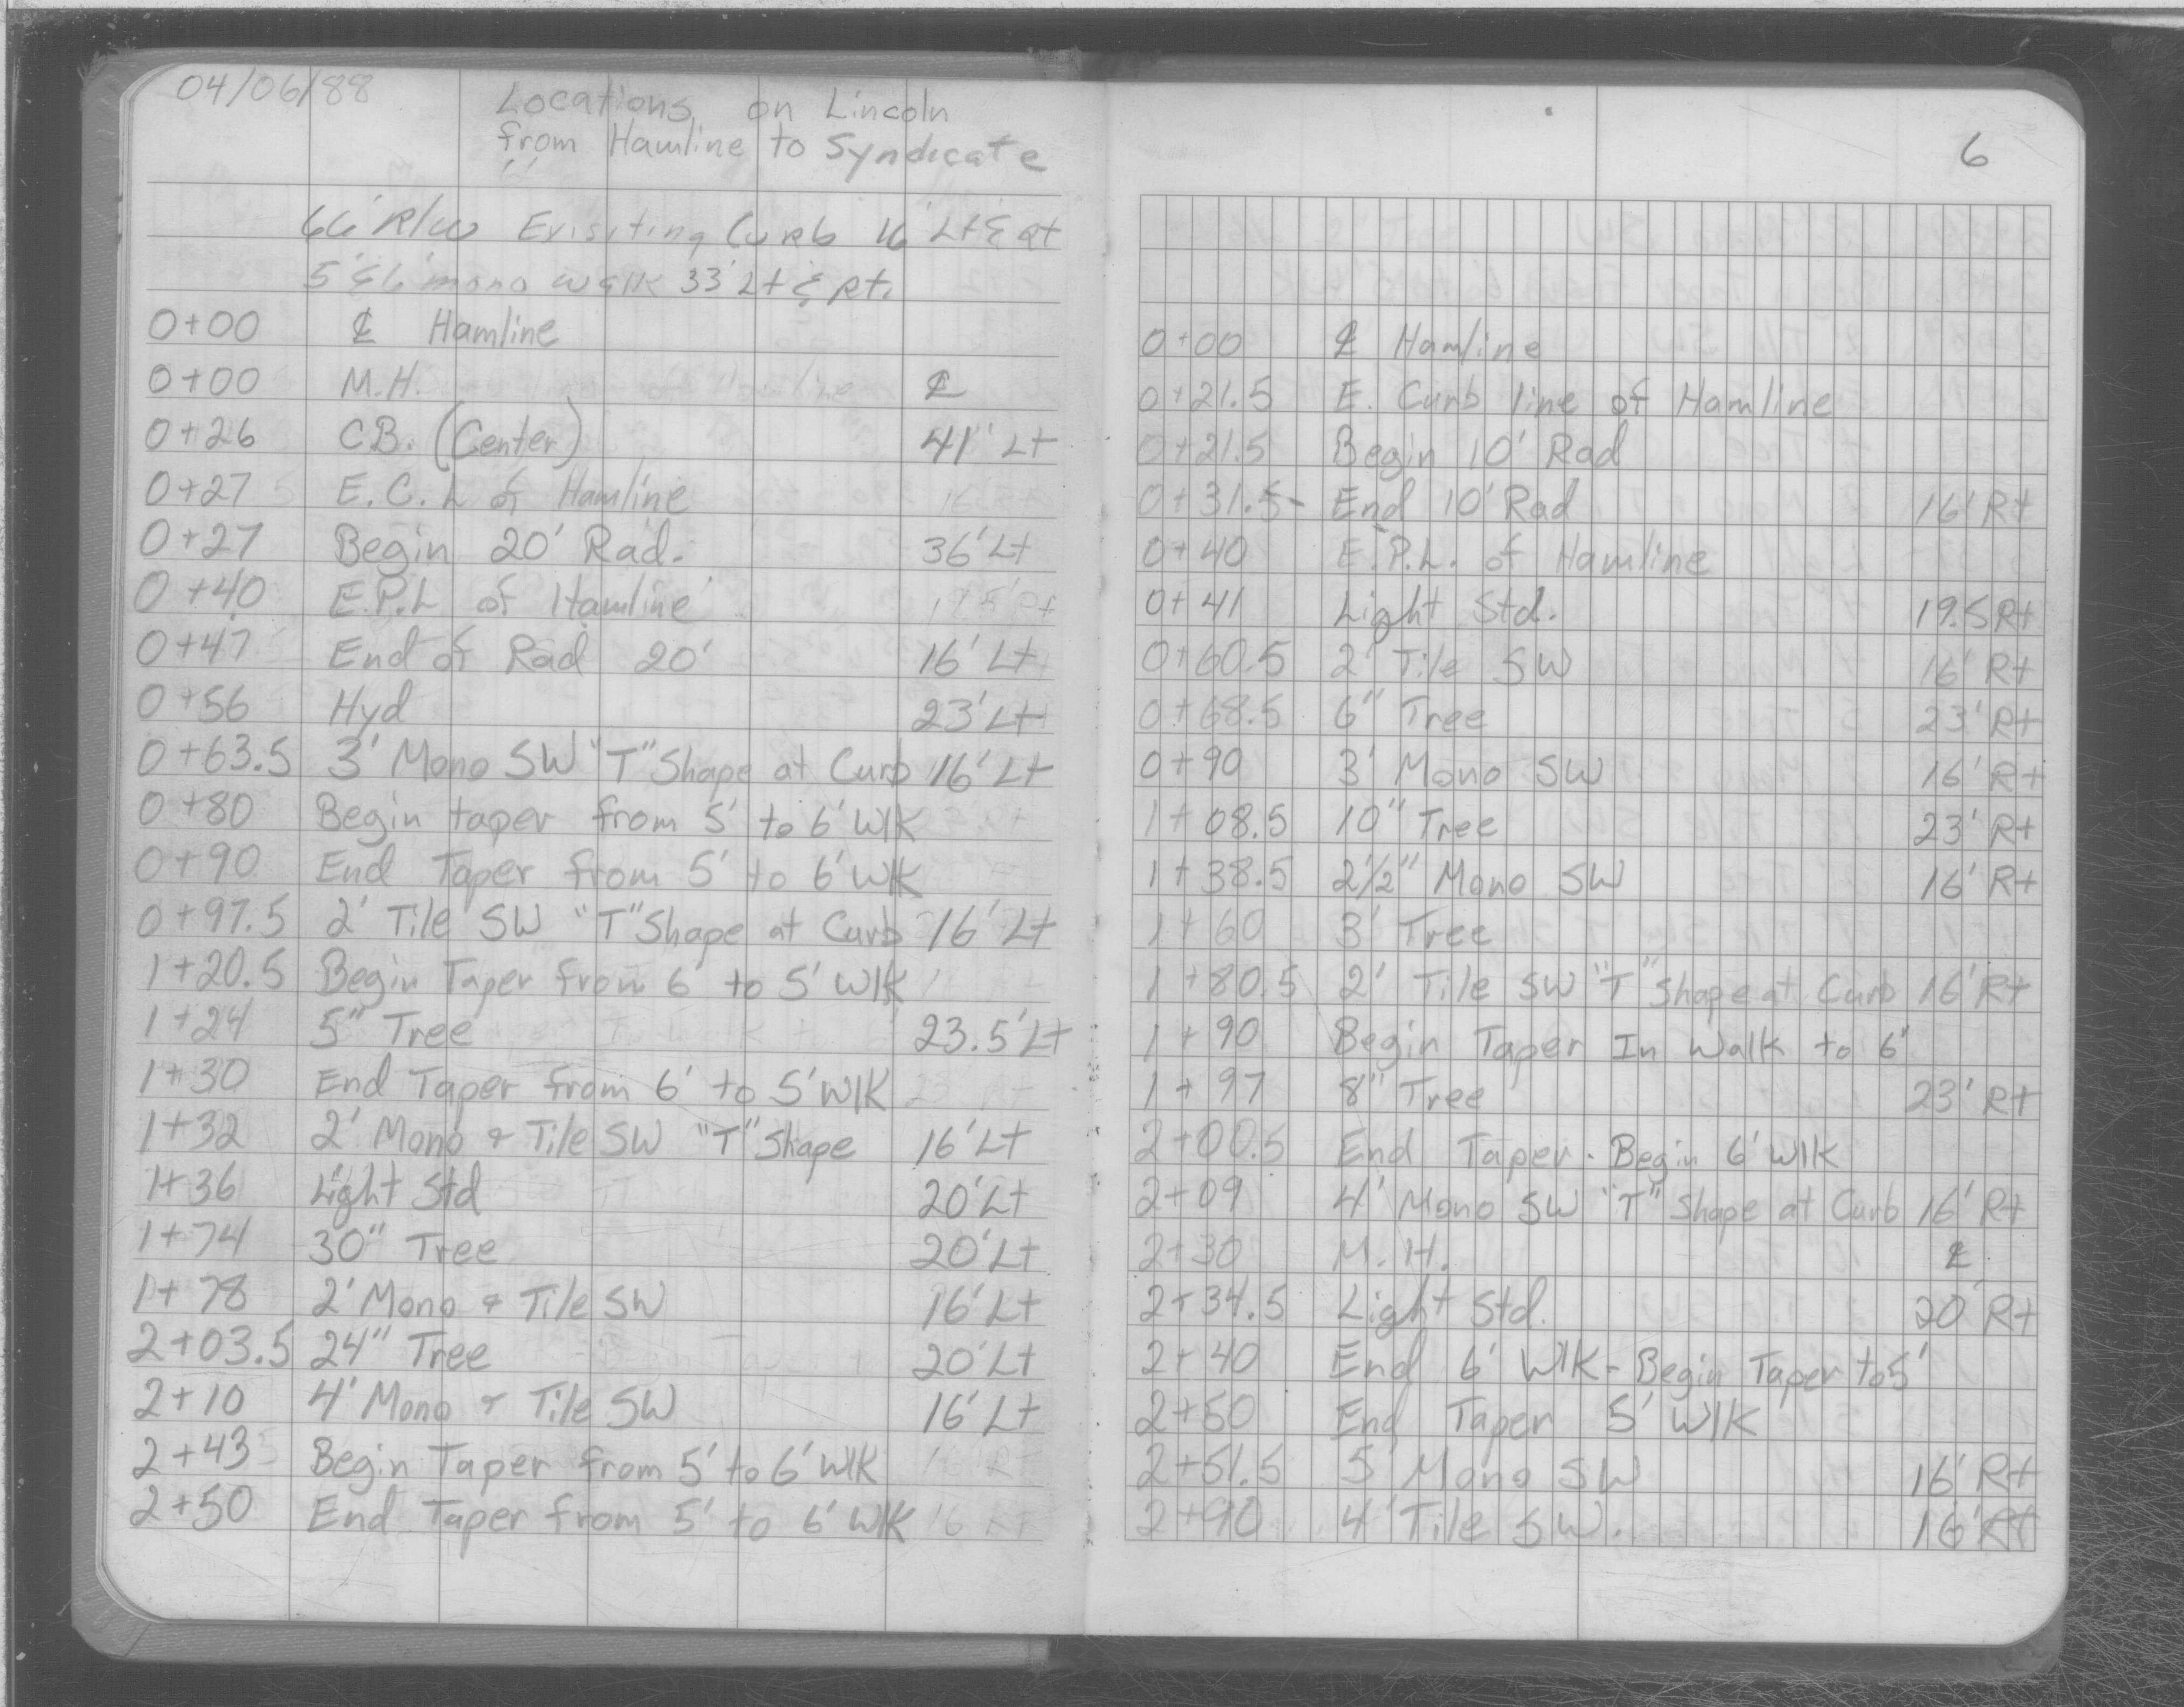 04/06/88
Locations on Lincoln
from Hamline to Syndicate
66' R/W Exisiting Curb 16' Lt & Rt
5' & 6' mono walk 33' Lt & Rt.
0+00 ℄ Hamline
0+00 M.H. ℄
0+26 CB. (Center) 41' Lt
0+27 E.C.L of Hamline
0+27 Begin 20' Rad. 36' Lt
0+40 E.P.L of Hamline
0+47 End of Rad 20' 16' Lt
0+56 Hyd 23' Lt
0+63.5 3' Mono SW "T" Shape at Curb 16' Lt
0+80 Begin taper from 5' to 6' WlK
0+90 End Taper from 5' to 6' WlK
0+97.5 2' Tile SW "T" Shape at Curb 16' Lt
1+20.5 Begin Taper from 6' to 5' WlK
1+24 5" Tree 23.5' Lt
1+30 End Taper from 6' to 5' WlK
1+32 2' Mono & Tile SW "T" Shape 16' Lt
1+36 Light Std 20' Lt
1+74 30" Tree 20' Lt
1+78 2' Mono & Tile SW 16' Lt
2+03.5 24" Tree 20' Lt
2+10 4' Mono & Tile SW 16' Lt
2+43 Begin Taper from 5' to 6' WlK
2+50 End Taper from 5' to 6' WlK
6
0+00 ℄ Hamline
0+21.5 E. Curb line of Hamline
0+21.5 Begin 10' Rad
0+31.5- End 10' Rad 16' Rt
0+40 E.P.L. of Hamline
0+41 Light Std. 19.5 Rt
0+60.5 2' Tile SW 16' Rt
0+68.5 6" Tree 23' Rt
0+90 3' Mono SW 16' Rt
1+08.5 10" Tree 23' Rt
1+38.5 2½" Mono SW 16' Rt
1+60 3' Tree
1+80.5 2' Tile SW "T" Shape at Curb 16' Rt
1+90 Begin Taper In Walk to 6'
1+97 8" Tree 23' Rt
2+00.5 End Taper - Begin 6' WlK
2+09 4' Mono SW "T" Shape at Curb 16' Rt
2+30 M.H. ℄
2+34.5 Light Std. 20' Rt
2+40 End 6' WlK - Begin Taper to 5'
2+50 End Taper 5' WlK
2+51.5 5' Mono SW 16' Rt
2+90 4' Tile SW. 16' Rt